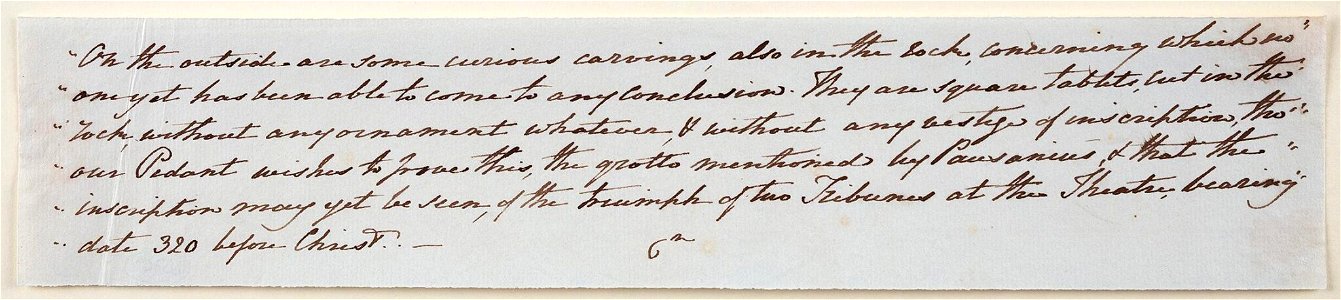 "On the outside are some curious carvings, also in the rock, concerning which no"
"one yet has been able to come to any conclusion. They are square tablets, cut in the"
"rock, without any ornament whatever, & without any vestige of inscription, tho'"
"our Pedant wishes to prove this, the grotto mentioned by Pausanius, & that the"
"inscription may yet be seen, of the triumph of two Tribunes at the Theatre, bearing"
"date 320 before Christ". —